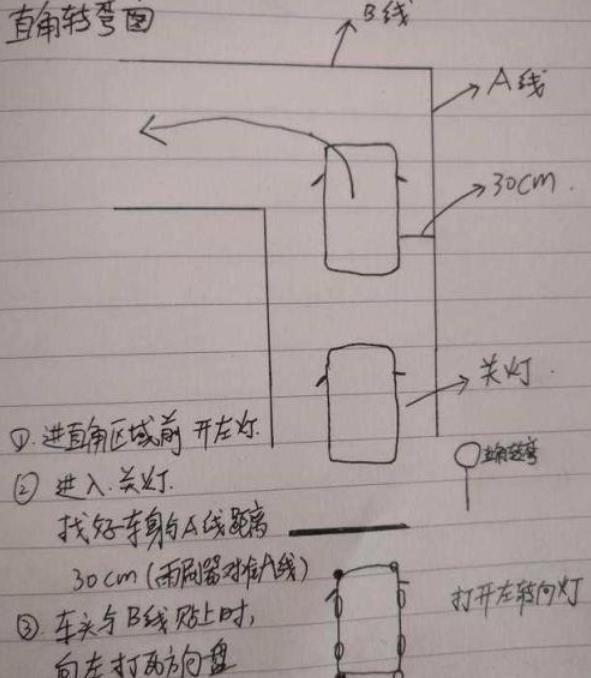 直角转弯图
B线
A线
30cm.
关灯.
①.进直角区域前 开左灯.
② 进入.关灯.
找好车身与A线距离
30cm(雨刷器对准A线)
直角转弯
打开左转向灯
③ 车头与B线贴上时,
向左打死方向盘